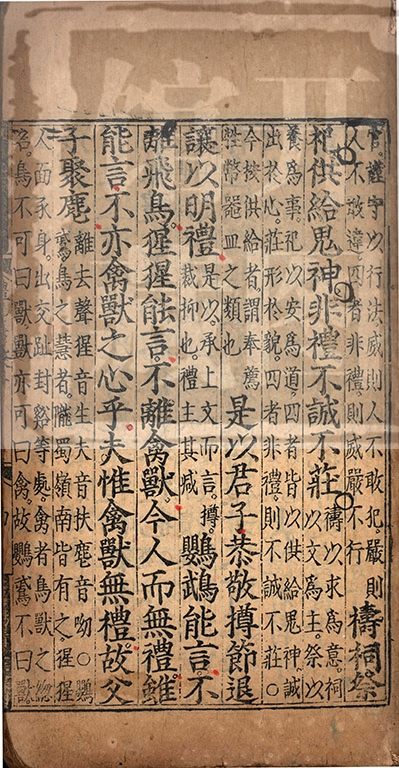 官謹守以行法威則人不敢犯嚴則
人不敢違四者非禮則威嚴不行
禱祠祭
祀供給鬼神非禮不誠不莊
禱以求為意祠
以文為主祭以
養為事祀以安為道四者皆以供給鬼神誠
出於心莊形於貌四者非禮則不誠不莊○
今按供給者謂奉薦
牲幣器皿之類也
是以君子恭敬撙節退
讓以明禮
是以承上文而言撙
裁抑也禮主其減
鸚鵡能言不
離飛鳥猩猩能言不離禽獸今人而無禮雖
能言不亦禽獸之心乎夫惟禽獸無禮故父
子聚麀
離去聲猩音生夫音扶麀音呦○鸚
鵡鳥之慧者隴蜀嶺南皆有之猩猩
人面豕身出交趾封谿等處禽者鳥獸之總
名鳥不可曰獸獸亦可曰禽故鸚鵡不曰獸